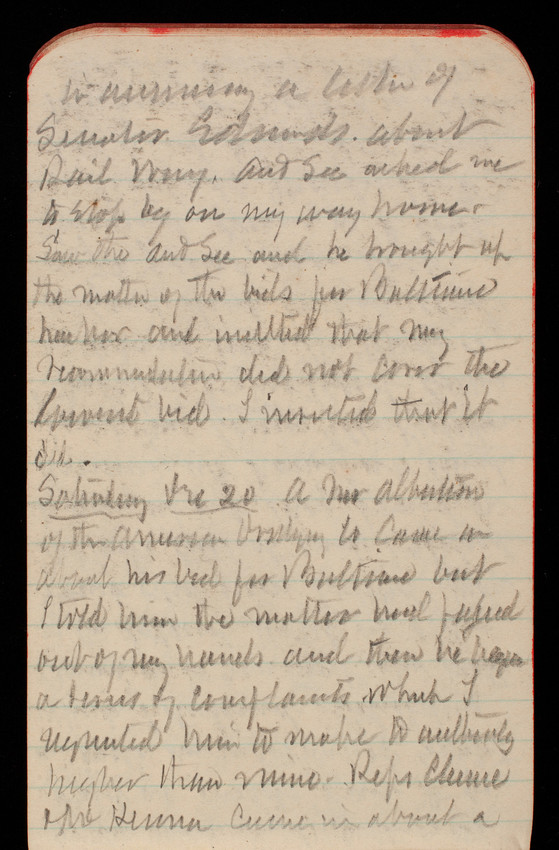 in answering a letter of
Senator Edmunds. about
Rail Way. And Sec asked me
to stop by on my way home.
Saw the And Sec and he brought up
the matter of the bids for Baltimore
harbor and insisted that my
recommendation did not cover the
lowest bid. I insisted that it
did.
Saturday Dec 20 A Mr Albertson
of the American Dredging Co Came in
about his bid for Baltimore but
I told him the matter had passed
out of my hands and then he began
a series of complaints which I
requested him to make to authority
higher than mine. Reps
Henna Came in about a